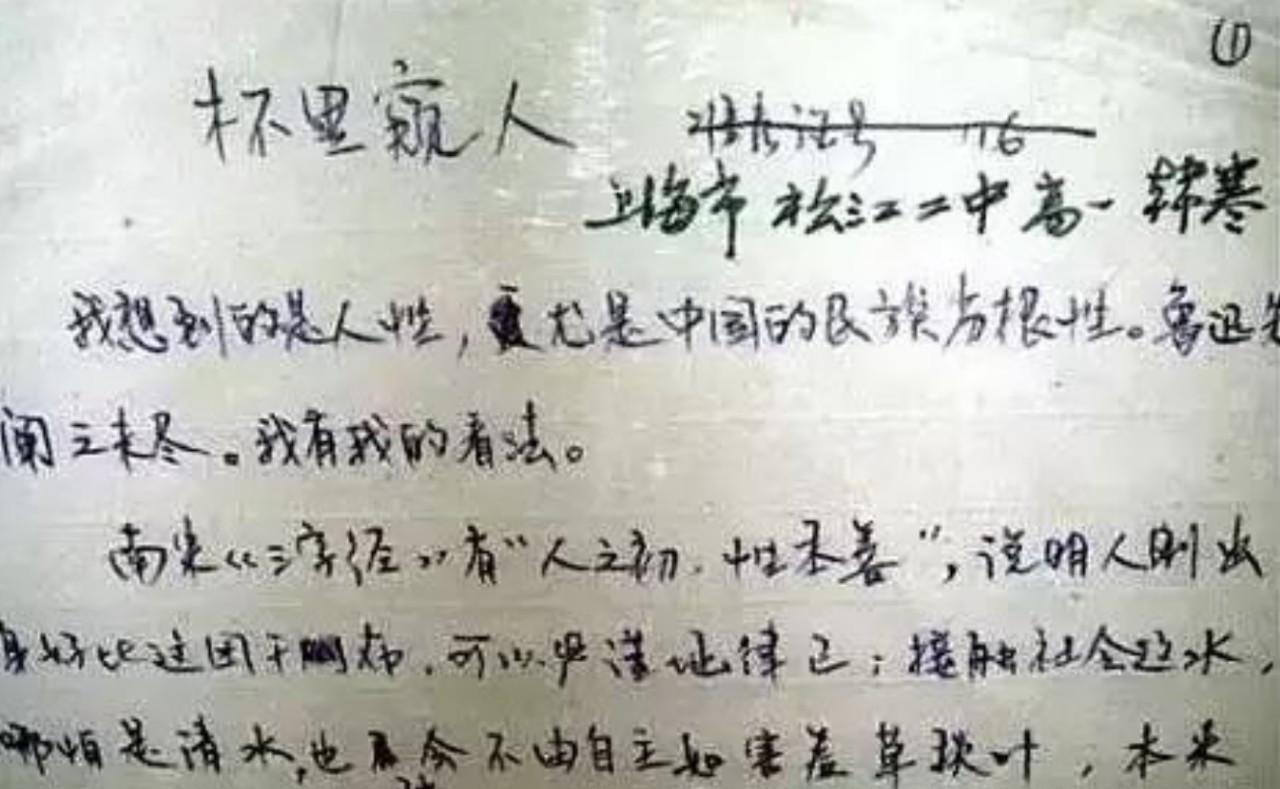 ①
杯里窥人
准考证号 116
上海市 松江二中 高一 韩寒
我想到的是人性,尤是中国的民族劣根性。鲁迅先
阐之未尽。我有我的看法。
南宋《三字经》有“人之初.性本善”,说明人刚出
身好比这团干布,可以严谨地律己;接触社会这水,
哪怕是清水,也会不由自主如害羞草敛叶,本来